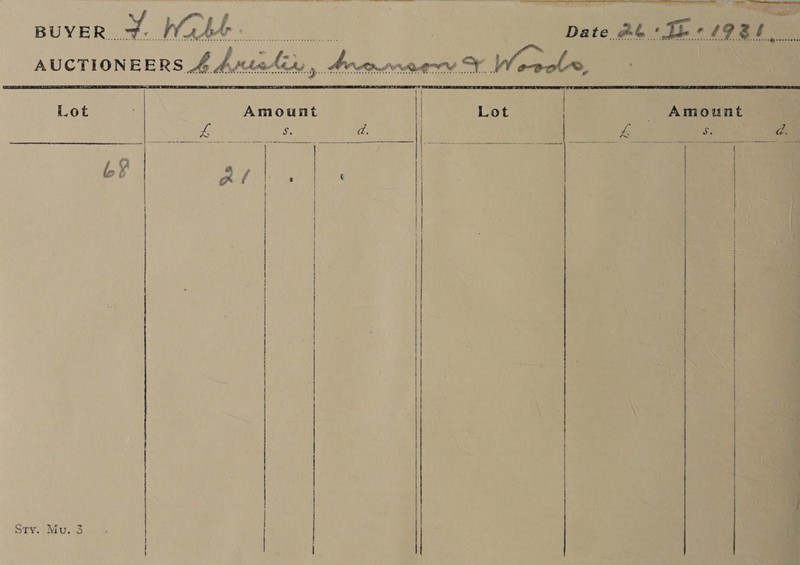 BUYER F. Webb. Date 26 · II · 1931.
AUCTIONEERS Christie, Manson & Woods,
Lot Amount Lot Amount
£ s. d. £ s. d.
68 21 . .
Sty. Mu. 3